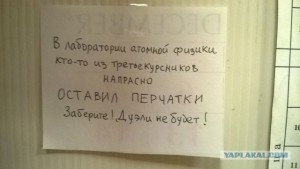 DECEMBER
В лаборатории атомной физики
кто-то из третьекурсников
НАПРАСНО
ОСТАВИЛ ПЕРЧАТКИ
Заберите! Дуэли не будет!
YAPLAKAL.COM